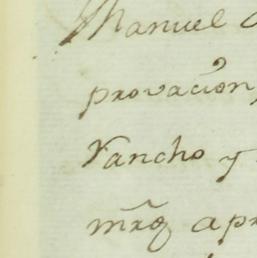 Manuel
provacion,
Rancho y
mrõ apr